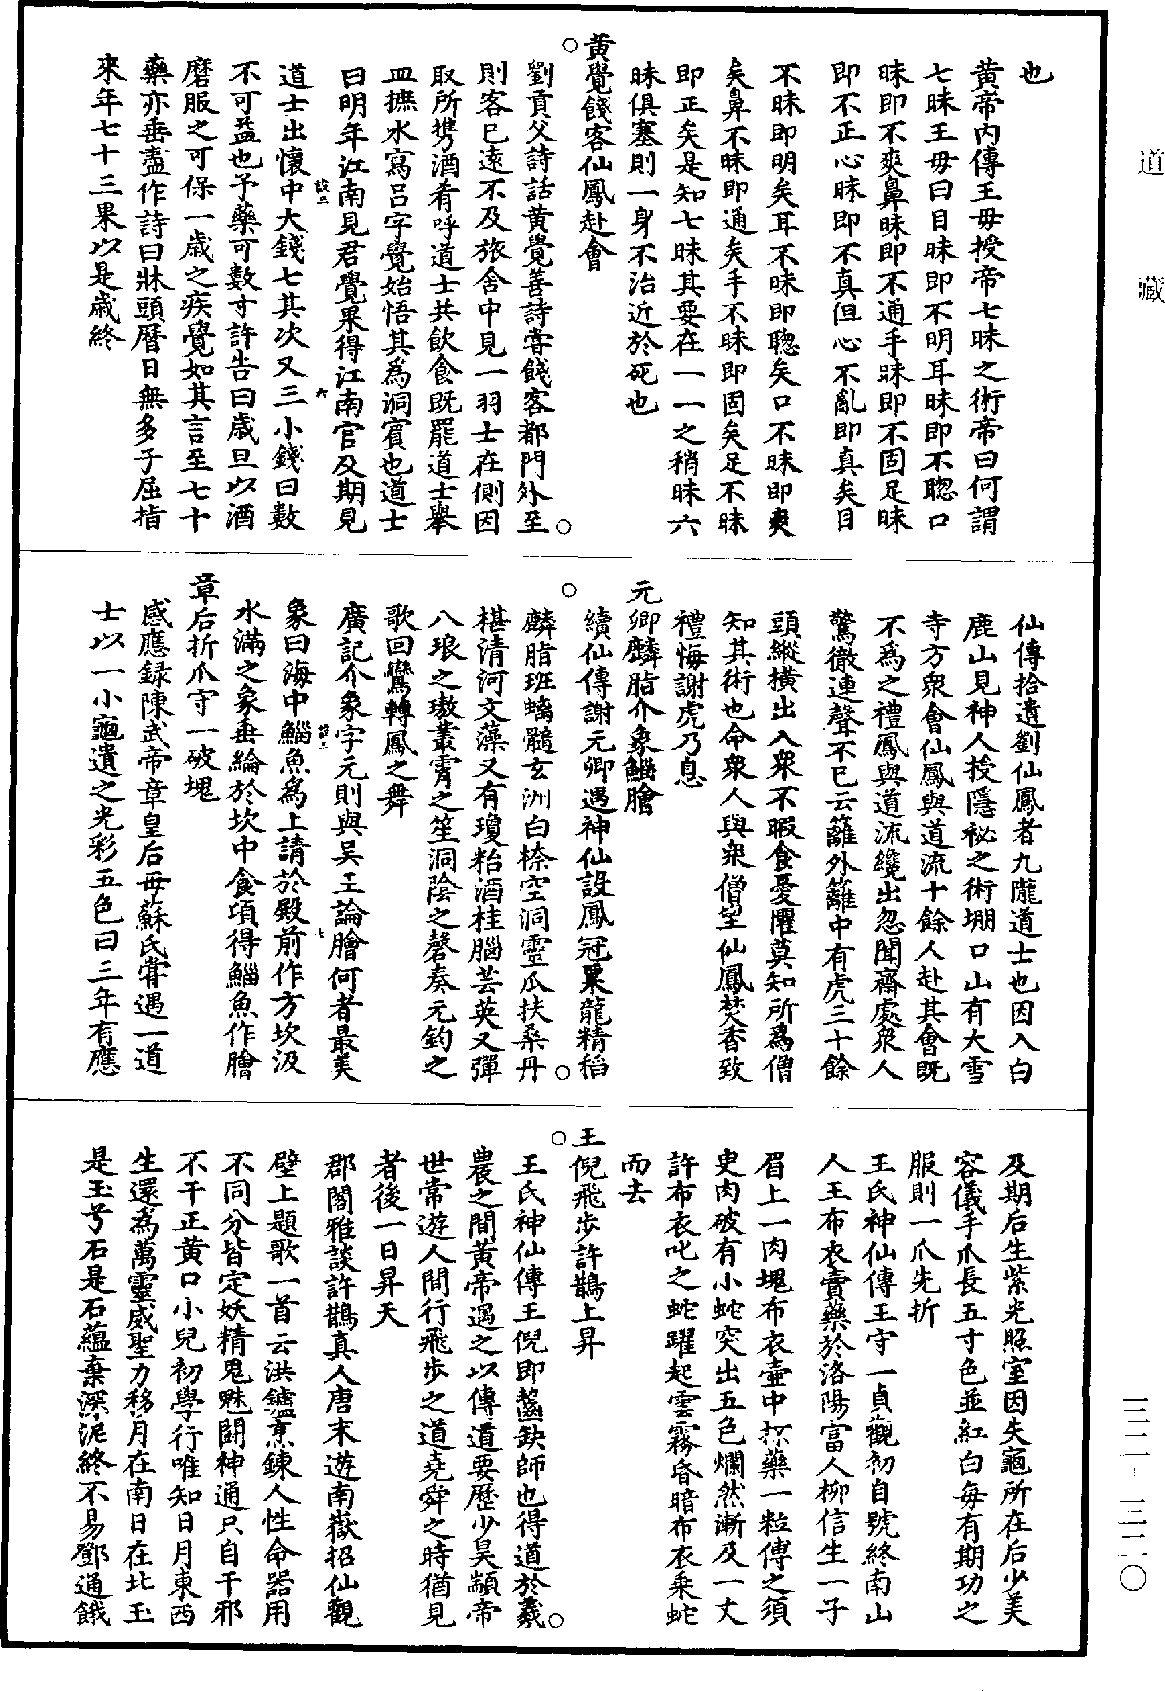 道藏
三二—三二〇
也
黄帝内傳王母授帝七昧之術帝曰何謂
七昧王母曰目昧即不明耳昧即不聰口
昧即不爽鼻昧即不通手昧即不固足昧
即不正心昧即不真但心不亂即真矣目
不昧即明矣耳不昧即聰矣口不昧即爽
矣鼻不昧即通矣手不昧即固矣足不昧
即正矣是知七昧其要在一一之稍昧六
昧俱塞則一身不治近於死也
黄覺餞客仙鳳赴會
劉貢父詩話黄覺善詩嘗餞客都門外至
則客已遠不及旅舍中見一羽士在側因
取所携酒肴呼道士共飲食既罷道士舉
皿摭水寫吕字覺始悟其為洞賓也道士
曰明年江南見君覺果得江南官及期見
道士出懷中大錢七其次又三小錢曰數
不可益也予藥可數寸許告曰歲旦以酒
磨服之可保一歲之疾覺如其言至七十
藥亦垂盡作詩曰牀頭曆日無多子屈指
來年七十三果以是歲終
仙傳拾遺劉仙鳳者九隴道士也因入白
鹿山見神人授隱祕之術堋口山有大雪
寺方衆會仙鳳與道流十餘人赴其會既
不為之禮鳳與道流纔出忽聞齋處衆人
驚徹連聲不已云籬外籬中有虎三十餘
頭縱橫出入衆不暇食憂懼莫知所為僧
知其術也命衆人與衆僧望仙鳳焚香致
禮悔謝虎乃息
元卿麟脂介象鯔膾
續仙傳謝元卿遇神仙設鳳冠粟龍精稻
麟脂班螭髓玄洲白㮈空洞靈瓜扶桑丹
椹清河文藻又有瓊粭酒桂腦芸英又彈
八琅之璈叢霄之笙洞陰之磬奏元鈞之
歌回鸞轉鳳之舞
廣記介象字元則與吴王論膾何者最美
象曰海中鯔魚為上請於殿前作方坎汲
水滿之象垂綸於坎中食頃得鯔魚作膾
章后折爪守一破塊
感應録陳武帝章皇后母蘇氏嘗遇一道
士以一小龜遺之光彩五色曰三年有應
及期后生紫光照室因失龜所在后少美
容儀手爪長五寸色並紅白每有期功之
服則一爪先折
王氏神仙傳王守一貞觀初自號終南山
人王布衣賣藥於洛陽富人柳信生一子
眉上一肉塊布衣壺中探藥一粒傅之須
臾肉破有小蛇突出五色爛然漸及一丈
許布衣叱之蛇躍起雲霧昏暗布衣乘蛇
而去
王倪飛步許鵲上昇
王氏神仙傳王倪即齧缺師也得道於羲
農之間黄帝遇之以傳道要歷少昊顓帝
世常遊人間行飛步之道堯舜之時猶見
者後一日昇天
郡閣雅談許鵲真人唐末遊南嶽招仙觀
壁上題歌一首云洪鑪烹鍊人性命器用
不同分皆定妖精鬼魅鬭神通只自干邪
不干正黄口小兒初學行唯知日月東西
生還為萬靈威聖力移月在南日在北玉
是玉兮石是石藴棄深泥終不易鄧通餓